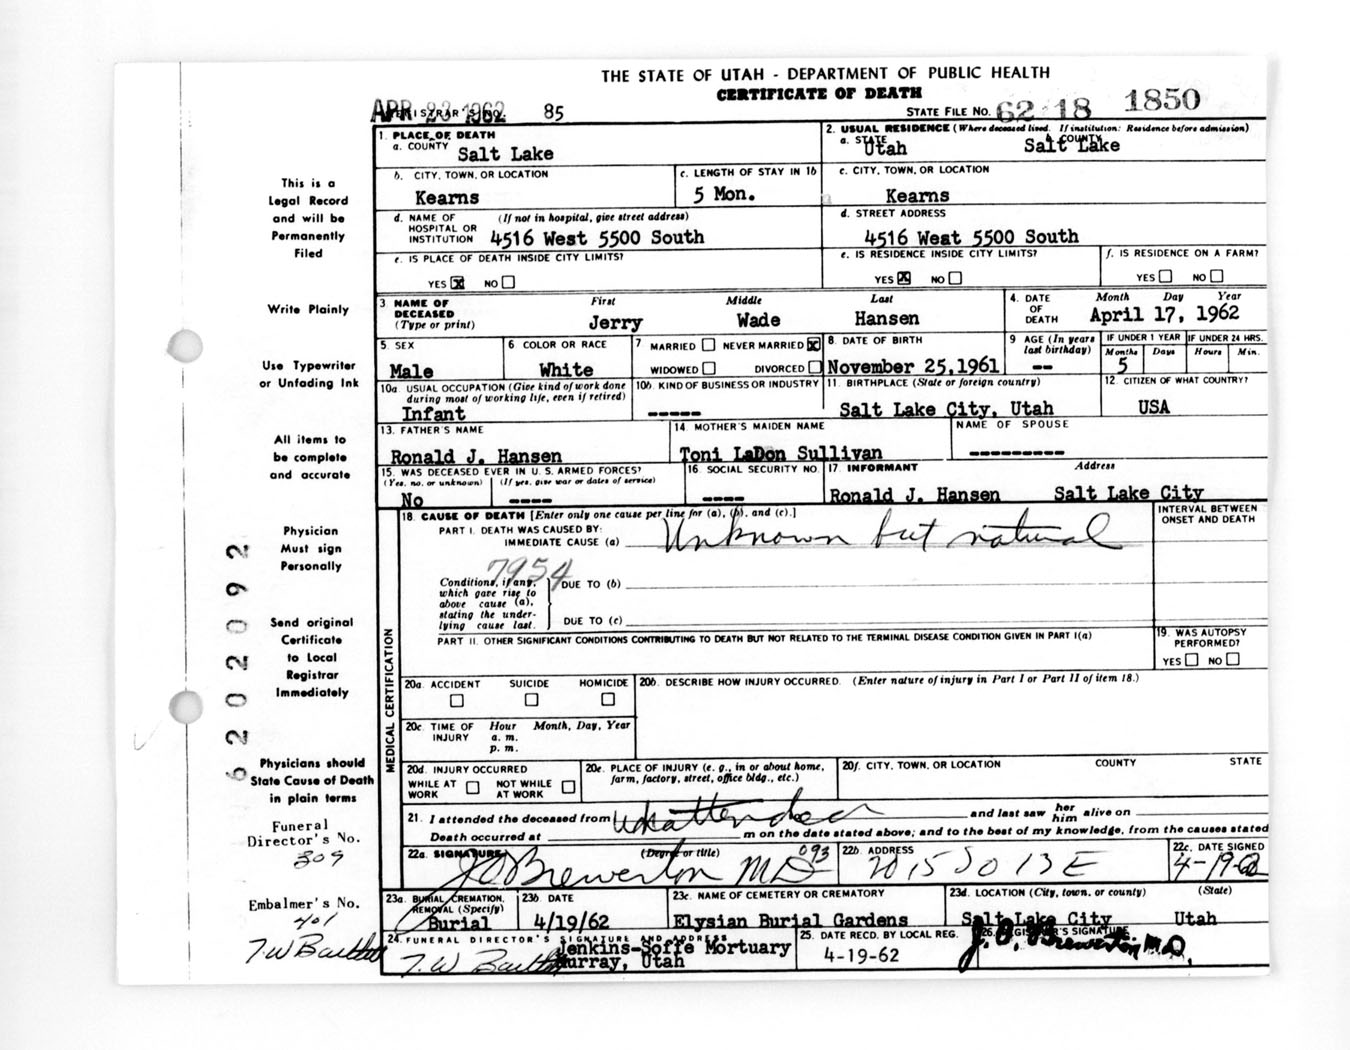 THE STATE OF UTAH - DEPARTMENT OF PUBLIC HEALTH
CERTIFICATE OF DEATH
APR 23 1962 REGISTRAR'S NO. 85
STATE FILE NO. 62 18 1850
1. PLACE OF DEATH
a. COUNTY Salt Lake
2. USUAL RESIDENCE (Where deceased lived. If institution: Residence before admission)
a. STATE Utah b. COUNTY Salt Lake
b. CITY, TOWN, OR LOCATION Kearns
c. LENGTH OF STAY IN 1b 5 Mon.
c. CITY, TOWN, OR LOCATION Kearns
d. NAME OF HOSPITAL OR INSTITUTION (If not in hospital, give street address) 4516 West 5500 South
d. STREET ADDRESS 4516 West 5500 South
e. IS PLACE OF DEATH INSIDE CITY LIMITS?
YES X NO
e. IS RESIDENCE INSIDE CITY LIMITS?
YES X NO
f. IS RESIDENCE ON A FARM?
YES NO
3 NAME OF DECEASED (Type or print)
First Middle Last
Jerry Wade Hansen
4. DATE OF DEATH
Month Day Year
April 17, 1962
5. SEX Male
6 COLOR OR RACE White
7 MARRIED NEVER MARRIED X
WIDOWED DIVORCED
8. DATE OF BIRTH November 25, 1961
9 AGE (In years last birthday) --
IF UNDER 1 YEAR IF UNDER 24 HRS.
Months Days Hours Min.
5
10a. USUAL OCCUPATION (Give kind of work done during most of working life, even if retired)
Infant
10b. KIND OF BUSINESS OR INDUSTRY -----
11. BIRTHPLACE (State or foreign country)
Salt Lake City, Utah
12. CITIZEN OF WHAT COUNTRY?
USA
13. FATHER'S NAME
Ronald J. Hansen
14. MOTHER'S MAIDEN NAME
Toni LaDon Sullivan
NAME OF SPOUSE
---------
15. WAS DECEASED EVER IN U.S. ARMED FORCES?
(Yes, no, or unknown) (If yes, give war or dates of service)
No ----
16. SOCIAL SECURITY NO.
----
17. INFORMANT Address
Ronald J. Hansen Salt Lake City
18. CAUSE OF DEATH [Enter only one cause per line for (a), (b), and (c).]
INTERVAL BETWEEN ONSET AND DEATH
PART I. DEATH WAS CAUSED BY:
IMMEDIATE CAUSE (a) Unknown but natural
7954
Conditions, if any, which gave rise to above cause (a), stating the underlying cause last.
DUE TO (b)
DUE TO (c)
PART II. OTHER SIGNIFICANT CONDITIONS CONTRIBUTING TO DEATH BUT NOT RELATED TO THE TERMINAL DISEASE CONDITION GIVEN IN PART I(a)
19. WAS AUTOPSY PERFORMED?
YES NO
MEDICAL CERTIFICATION
20a. ACCIDENT SUICIDE HOMICIDE
20b. DESCRIBE HOW INJURY OCCURRED. (Enter nature of injury in Part I or Part II of item 18.)
20c. TIME OF INJURY Hour Month, Day, Year
a. m.
p. m.
20d. INJURY OCCURRED
WHILE AT WORK NOT WHILE AT WORK
20e. PLACE OF INJURY (e. g., in or about home, farm, factory, street, office bldg., etc.)
20f. CITY, TOWN, OR LOCATION COUNTY STATE
21. I attended the deceased from Unattended and last saw her him alive on
Death occurred at m on the date stated above; and to the best of my knowledge, from the causes stated
22a. SIGNATURE (Degree or title) 093
J O Brewerton MD
22b. ADDRESS
2015 So 13 E
22c. DATE SIGNED
4-19-62
23a. BURIAL, CREMATION, REMOVAL (Specify)
Burial
23b. DATE
4/19/62
23c. NAME OF CEMETERY OR CREMATORY
Elysian Burial Gardens
23d. LOCATION (City, town, or county) (State)
Salt Lake City Utah
24. FUNERAL DIRECTOR'S SIGNATURE AND ADDRESS
Jenkins-Soffe Mortuary
Murray, Utah
25. DATE RECD. BY LOCAL REG.
4-19-62
26. REGISTRAR'S SIGNATURE
J. O. Brewerton M.D.
This is a
Legal Record
and will be
Permanently
Filed
Write Plainly
Use Typewriter
or Unfading Ink
All items to
be complete
and accurate
Physician
Must sign
Personally
Send original
Certificate
to Local
Registrar
Immediately
Physicians should
State Cause of Death
in plain terms
Funeral
Director's No.
309
Embalmer's No.
401
6202092